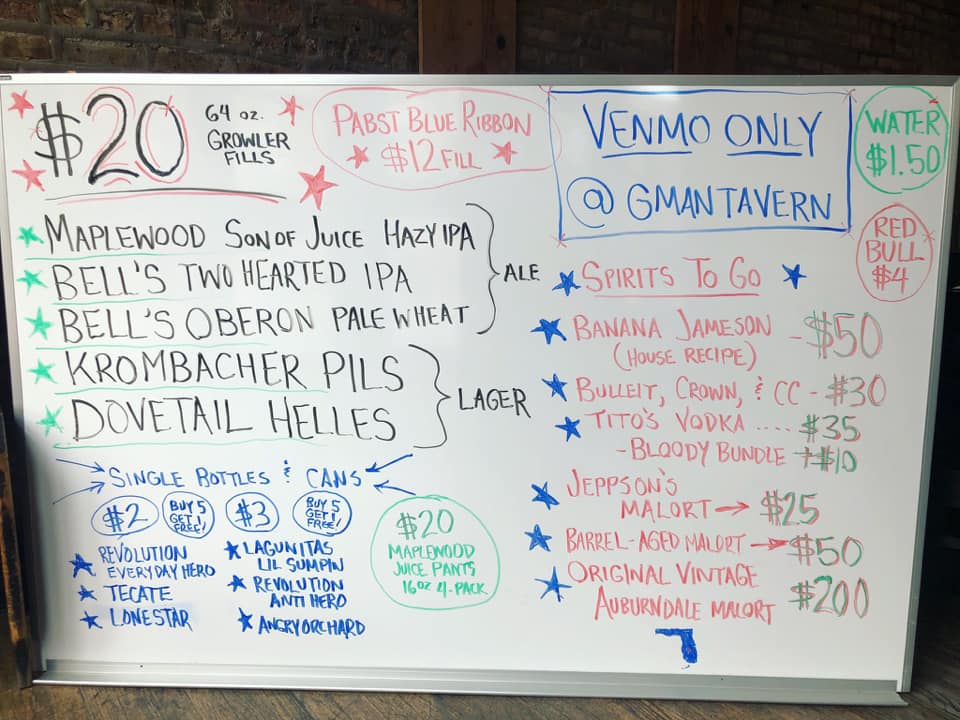 $20
64 oz.
GROWLER
FILLS
PABST BLUE RIBBON
$12 FILL
MAPLEWOOD SON OF JUICE HAZY IPA
BELL'S TWO HEARTED IPA
BELL'S OBERON PALE WHEAT
ALE
KROMBACHER PILS
DOVETAIL HELLES
LAGER
SINGLE BOTTLES & CANS
$2
BUY 5
GET 1
FREE!
REVOLUTION
EVERYDAY HERO
TECATE
LONESTAR
$3
BUY 5
GET 1
FREE!
LAGUNITAS
LIL SUMPIN
REVOLUTION
ANTI HERO
ANGRY ORCHARD
$20
MAPLEWOOD
JUICE PANTS
16oz 4-PACK
VENMO ONLY
@ GMANTAVERN
WATER
$1.50
RED
BULL
$4
SPIRITS TO GO
BANANA JAMESON - $50
(HOUSE RECIPE)
BULLEIT, CROWN, & CC - $30
TITO'S VODKA ..... $35
- BLOODY BUNDLE +$10
JEPPSON'S
MALORT → $25
BARREL-AGED MALORT → $50
ORIGINAL VINTAGE
AUBURNDALE MALORT $200